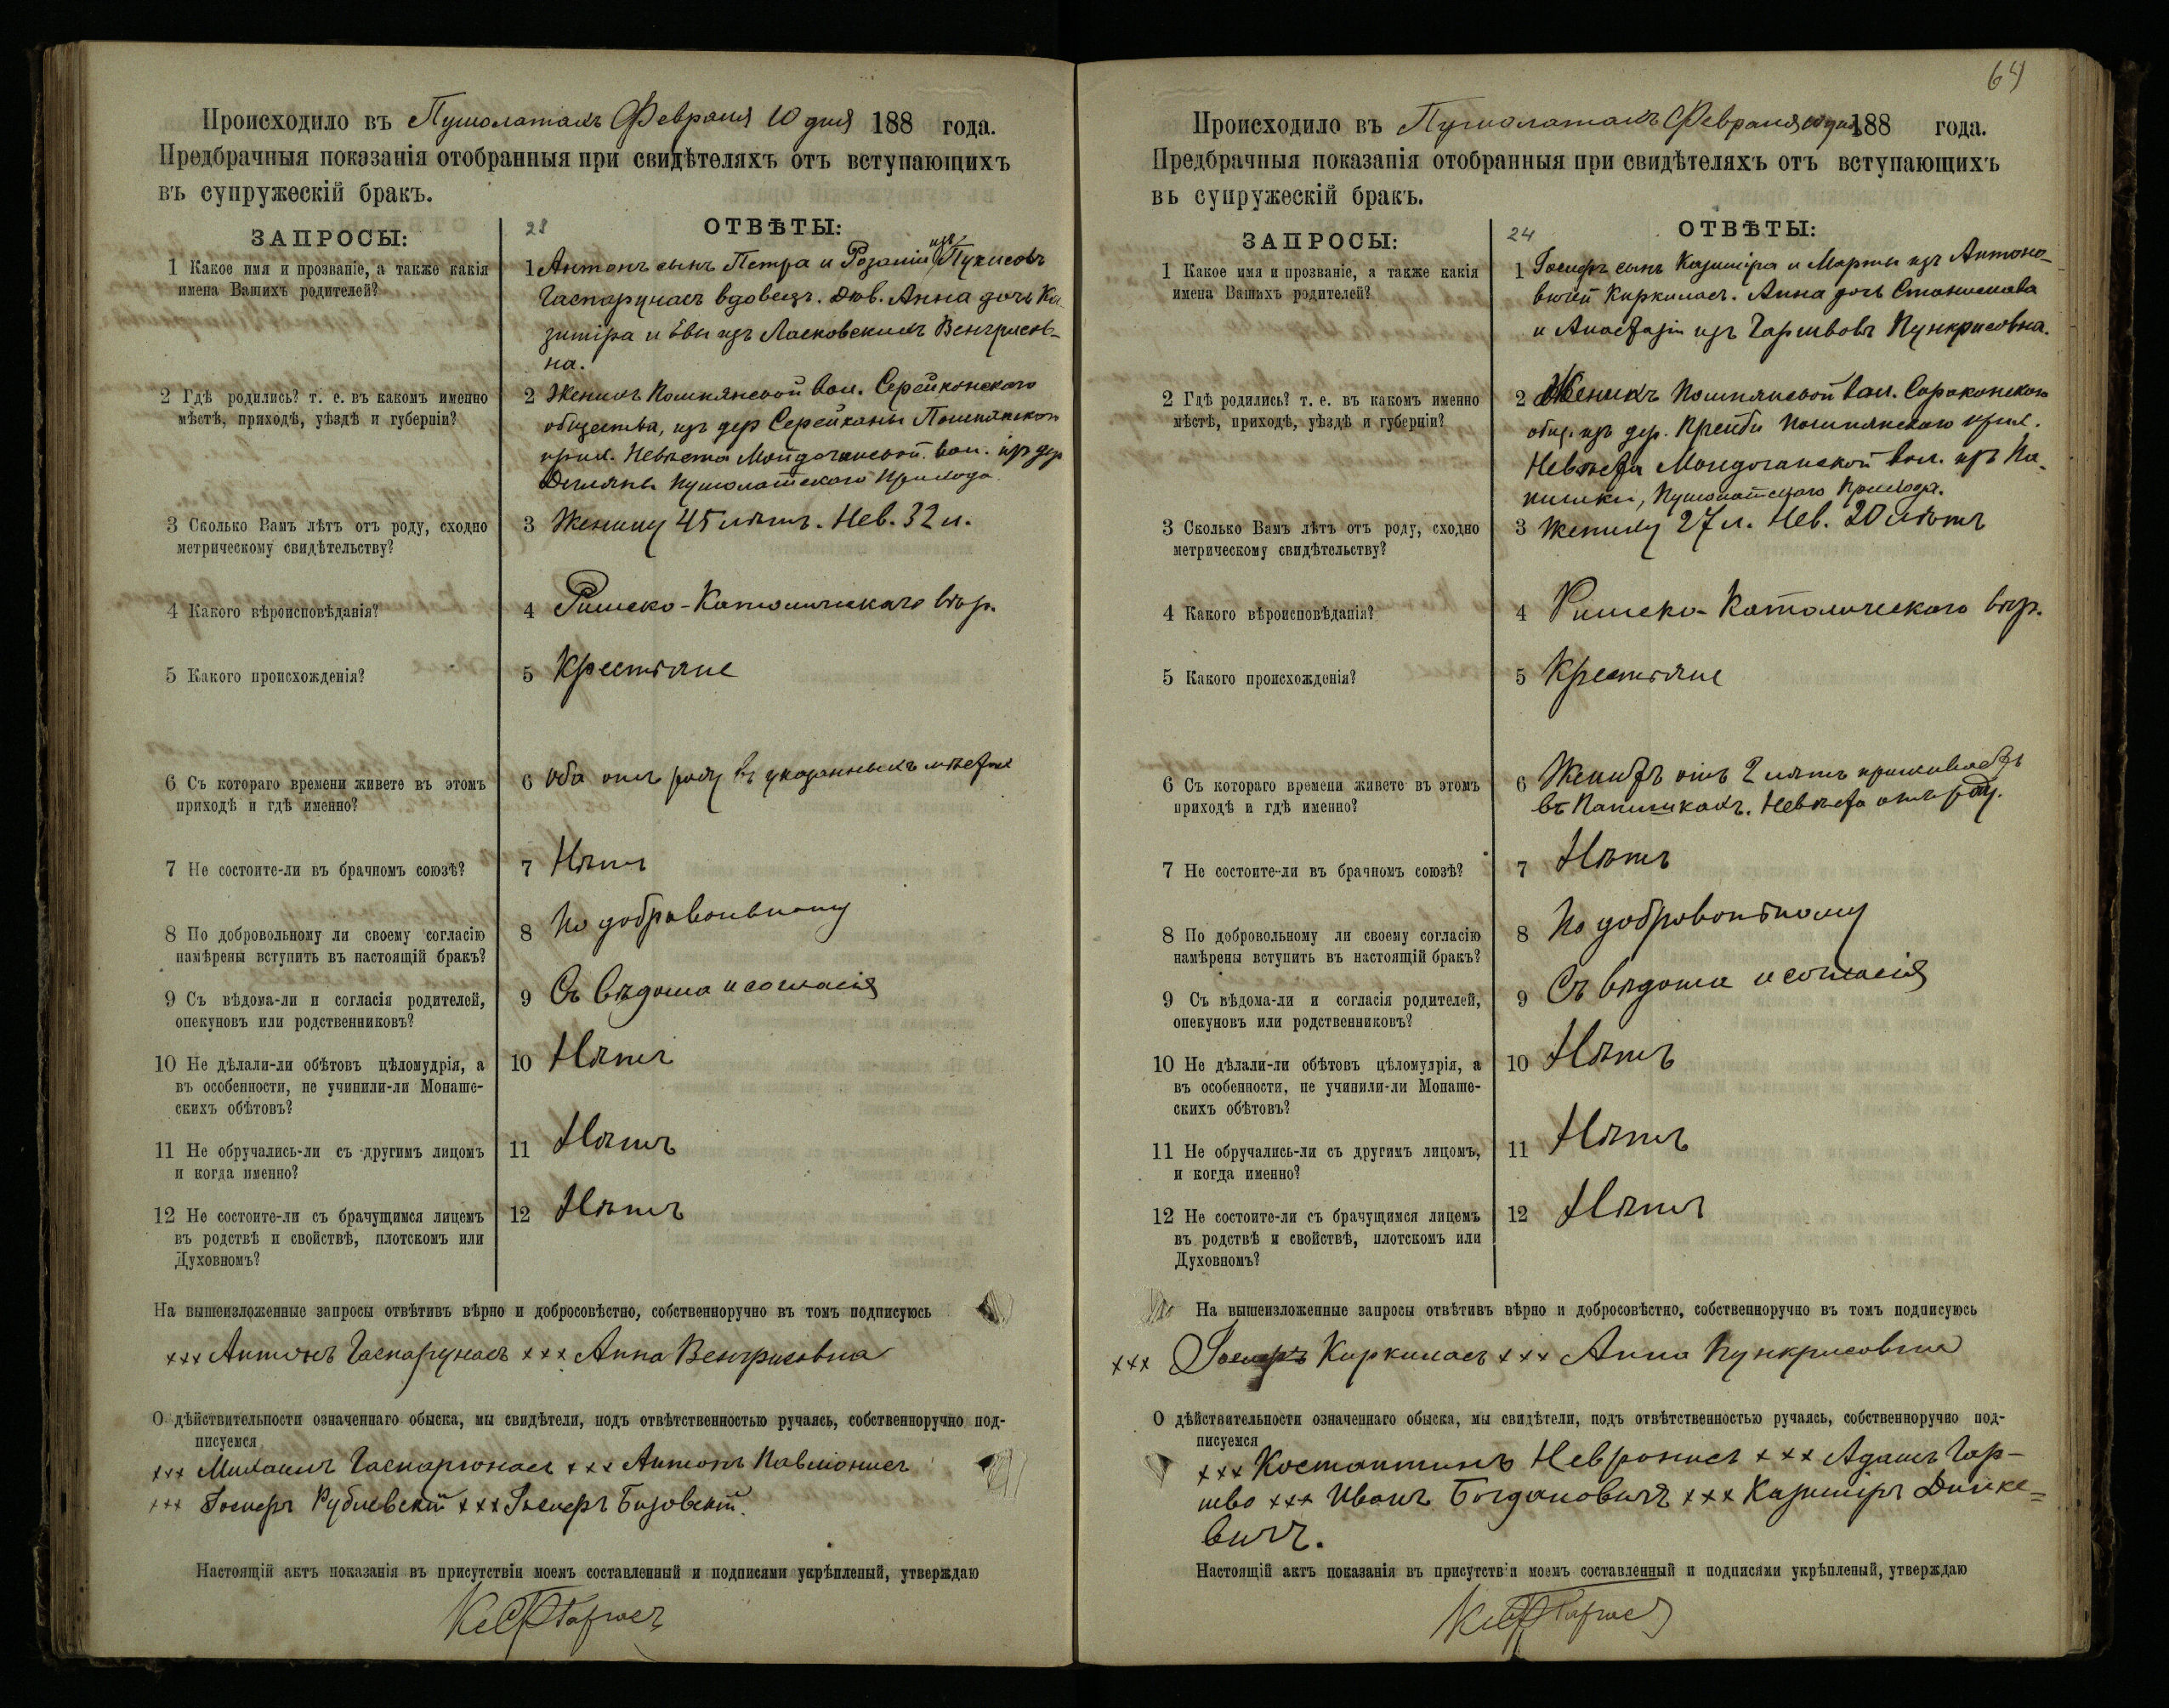 Происходило въ Пушолатахъ Февраля 10 дня 188 года.
Предбрачныя показанія отобранныя при свидѣтеляхъ отъ вступающихъ
въ супружескій бракъ.
ЗАПРОСЫ:
23 ОТВѢТЫ:
1 Какое имя и прозваніе, а также какія
имена Вашихъ родителей?
1 Антонъ сынъ Петра и Розаліи изъ
Гаспарунасъ вдовецъ. Дѣв. Анна дочь Ка
зиміра и Евы изъ Ласковскихъ Венгрисов-
на.
2 Гдѣ родились? т. е. въ какомъ именно
мѣстѣ, приходѣ, уѣздѣ и губерніи?
2 Женихъ Пошилянской вол. Серейконскаго
общества, изъ дер Серейканы
прих. Невѣста вол. изъ дер
Пушолатскаго Прихода.
3 Сколько Вамъ лѣтъ отъ роду, сходно
метрическому свидѣтельству?
3 Жениху 45 лѣтъ. Нев. 32 л.
4 Какого вѣроисповѣданія?
4 Римско-Католическаго вѣр.
5 Какого происхожденія?
5 Крестьяне
6 Съ котораго времени живете въ этомъ
приходѣ и гдѣ именно?
6 Оба отъ роду въ указанныхъ мѣстах
7 Не состоите-ли въ брачномъ союзѣ?
7 Нѣтъ
8 По добровольному ли своему согласію
намѣрены вступить въ настоящій бракъ?
8 По добровольному
9 Съ вѣдома-ли и согласія родителей,
опекуновъ или родственниковъ?
9 Съ вѣдома и согласія
10 Не дѣлали-ли обѣтовъ цѣломудрія, а
въ особенности, не учинили-ли Монаше-
скихъ обѣтовъ?
10 Нѣтъ
11 Не обручались-ли съ другимъ лицомъ
и когда именно?
11 Нѣтъ
12 Не состоите-ли съ брачущимся лицемъ
въ родствѣ и свойствѣ, плотскомъ или
Духовномъ?
12 Нѣтъ
На вышеизложенные запросы отвѣтивъ вѣрно и добросовѣстно, собственноручно въ томъ подписуюсь
××× Антонъ Гаспарунасъ ××× Анна Венгрисовна
О дѣйствительности означеннаго обыска, мы свидѣтели, подъ отвѣтственностью ручаясь, собственноручно под-
писуемся
××× Михаилъ Гаспарюнасъ ××× Антонъ Павліонисъ
××× Іосифъ Рублевскій ××× Іосифъ Бизовскій.
Настоящій актъ показанія въ присутствіи моемъ составленный и подписями укрѣпленый, утверждаю
64
Происходило въ Пушолатахъ Февраля 10 дня 188 года.
Предбрачныя показанія отобранныя при свидѣтеляхъ отъ вступающихъ
въ супружескій бракъ.
ЗАПРОСЫ:
24 ОТВѢТЫ:
1 Какое имя и прозваніе, а также какія
имена Вашихъ родителей?
1 Іосифъ сынъ Казиміра и Марты изъ Антоно-
вичей Киркиласъ. Анна дочь Станислава
и Анастазіи изъ Гаршвовъ Пункрисовна.
2 Гдѣ родились? т. е. въ какомъ именно
мѣстѣ, приходѣ, уѣздѣ и губерніи?
2 Женихъ Пошилянской вол.
общ. изъ дер. прих.
Невѣста вол. изъ Па-
пишки, Пушолатскаго Прихода.
3 Сколько Вамъ лѣтъ отъ роду, сходно
метрическому свидѣтельству?
3 Жениху 27 л. Нев. 20 лѣтъ
4 Какого вѣроисповѣданія?
4 Римско-Католическаго вѣр.
5 Какого происхожденія?
5 Крестьяне
6 Съ котораго времени живете въ этомъ
приходѣ и гдѣ именно?
6 Женихъ отъ 2 лѣтъ проживаетъ
въ Папишкахъ. Невѣста отъ роду.
7 Не состоите-ли въ брачномъ союзѣ?
7 Нѣтъ
8 По добровольному ли своему согласію
намѣрены вступить въ настоящій бракъ?
8 По добровольному
9 Съ вѣдома-ли и согласія родителей,
опекуновъ или родственниковъ?
9 Съ вѣдома и согласія
10 Не дѣлали-ли обѣтовъ цѣломудрія, а
въ особенности, не учинили-ли Монаше-
скихъ обѣтовъ?
10 Нѣтъ
11 Не обручались-ли съ другимъ лицомъ,
и когда именно?
11 Нѣтъ
12 Не состоите-ли съ брачущимся лицемъ
въ родствѣ и свойствѣ, плотскомъ или
Духовномъ?
12 Нѣтъ
На вышеизложенные запросы отвѣтивъ вѣрно и добросовѣстно, собственноручно въ томъ подписуюсь
××× Іосифъ Киркиласъ ××× Анна Пункрисовна
О дѣйствительности означеннаго обыска, мы свидѣтели, подъ отвѣтственностью ручаясь, собственноручно под-
писуемся
××× Костантинъ Невронисъ ××× Адамъ Гар-
шво ××× Иванъ Богдановичъ ××× Казиміръ Динке=
вичъ.
Настоящій актъ показанія въ присутствіи моемъ составленный и подписями укрѣпленый, утверждаю